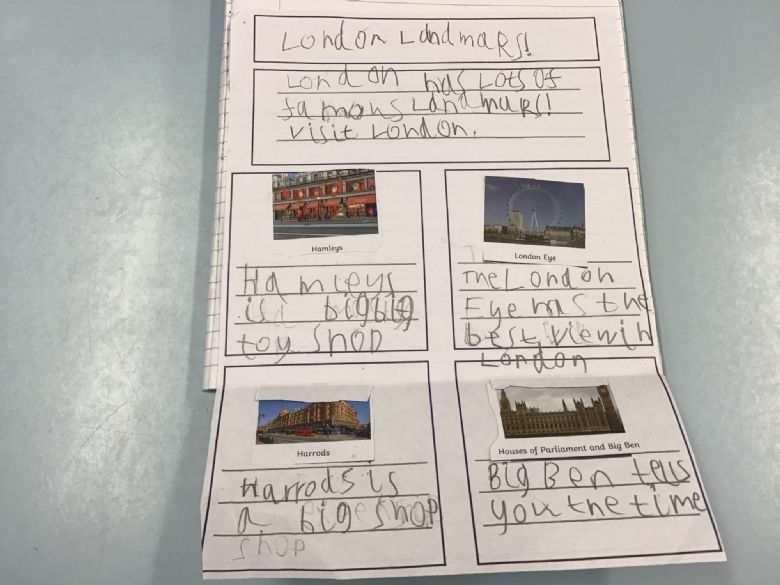 London Landmars!
London has Lots of
famous Landmars!
visit London.
Hamleys
Hamleys
is a big big
toy shop
London Eye
The London
Eye has the
best view in
London
Harrods
Harrods is
a big shop
shop
Houses of Parliament and Big Ben
Big Ben tells
you the time